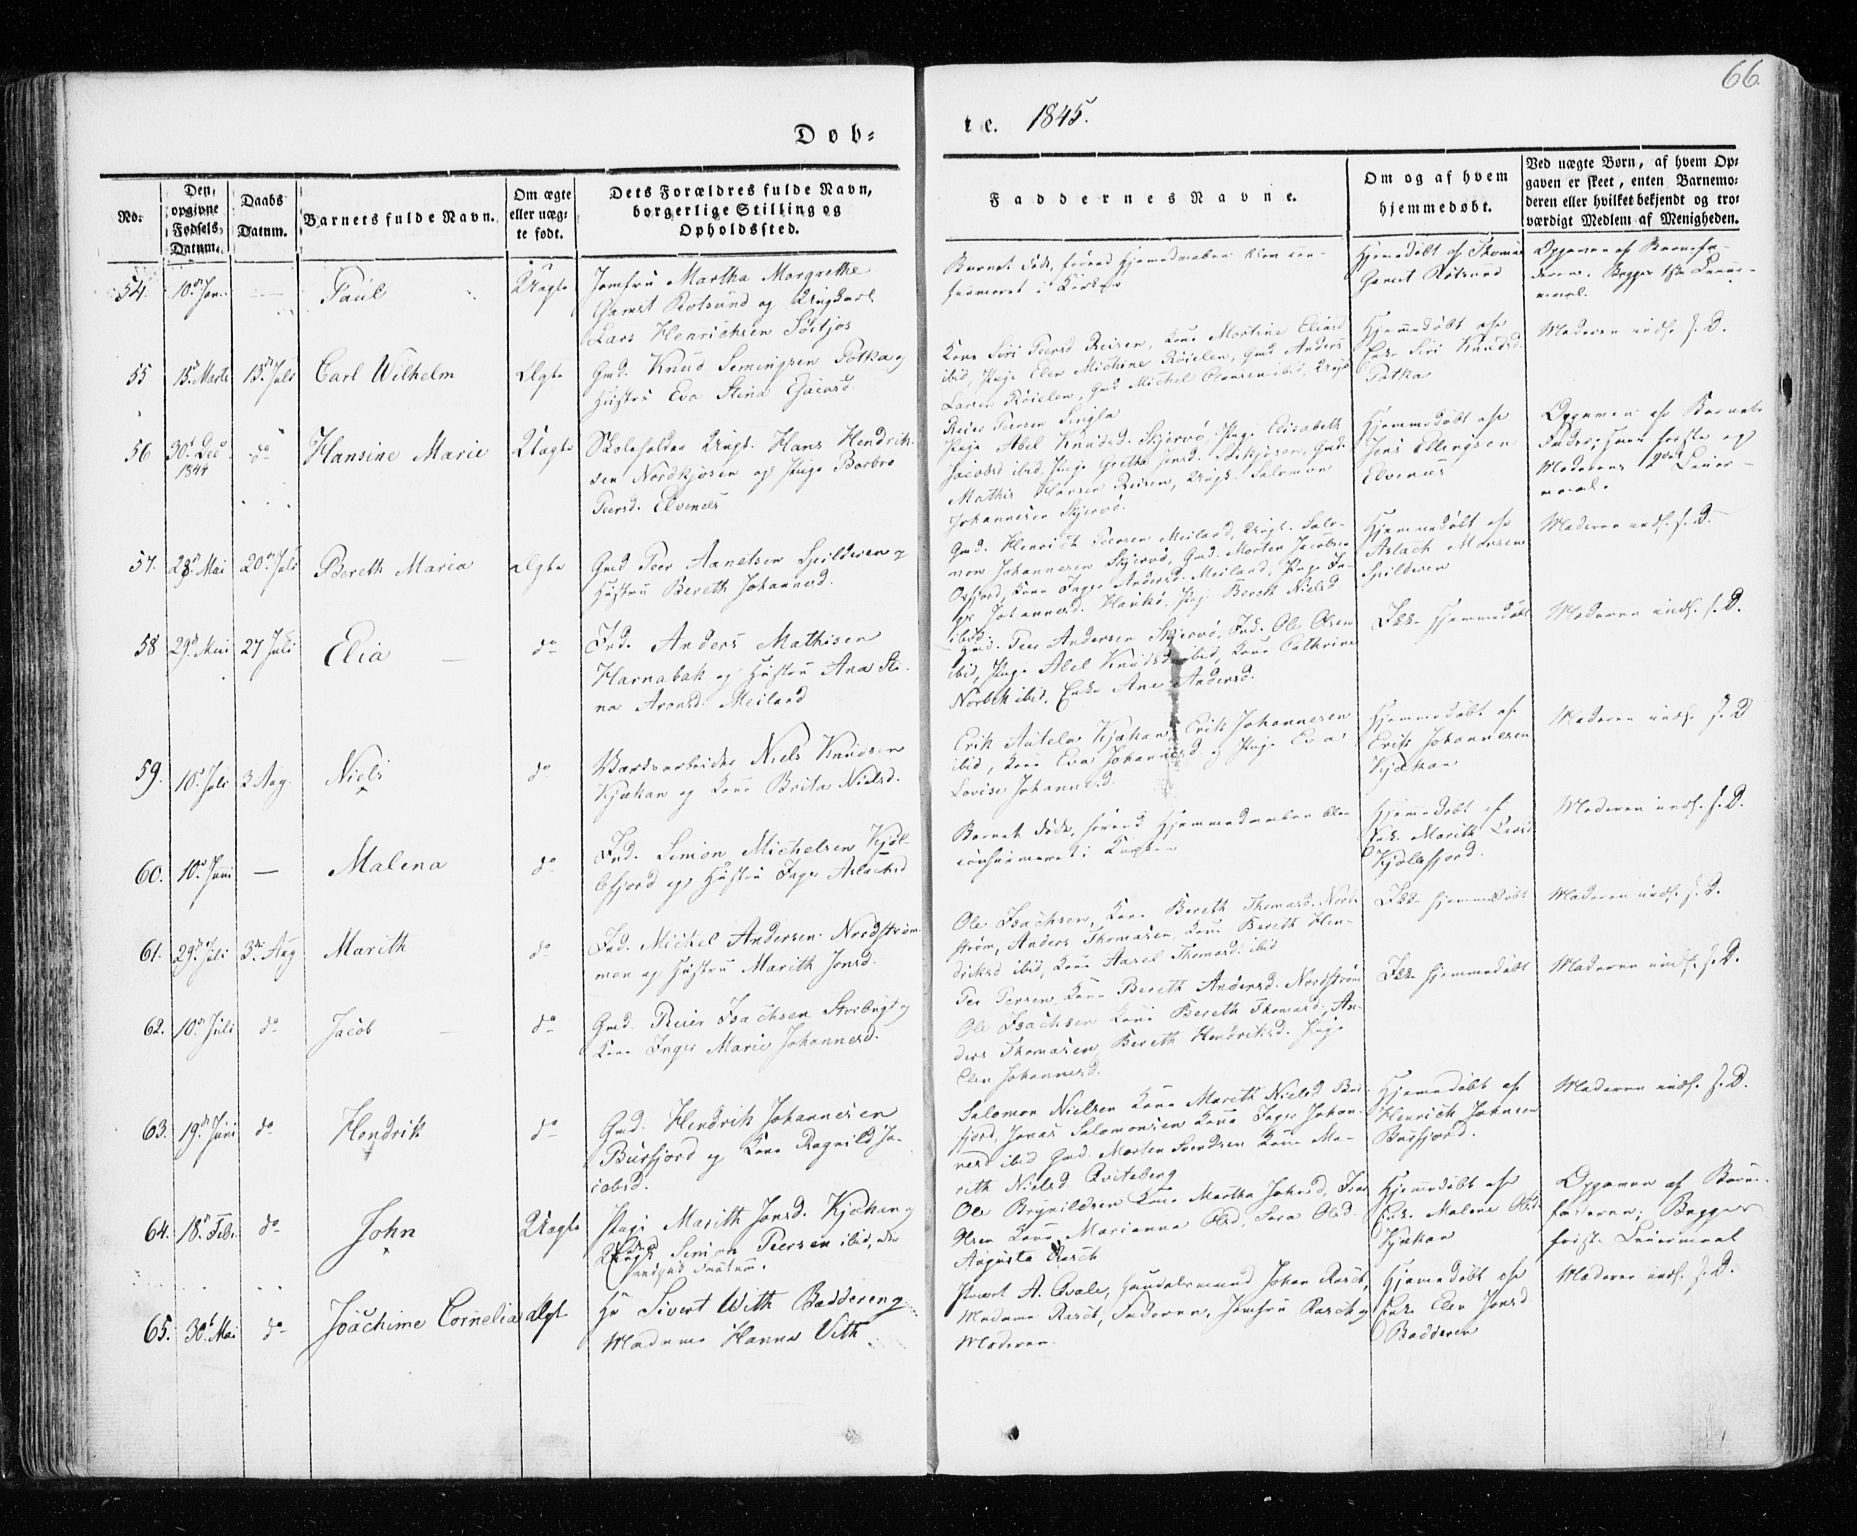 66.
Døb-
te. 1845.
No.
Den opgivne Fødsels-Datum.
Daabs Datum.
Barnets fulde Navn.
Om ægte eller uæg-te født.
Dets Forældres fulde Navn, borgerlige Stilling og Opholdssted.
Faddernes Navne.
Om og af hvem hjemmedøbt.
Ved uægte Børn, af hvem Op-gaven er skeet, enten Barnemo-deren eller hvilket bekjendt og tro-værdigt Medlem af Menigheden.
54. 10de Jan. — Paul Uægte
Jomfru Martha Margrethe
Gamst Rotsund og Ungkarl
Lars Henrichsen
Barnet døde, førend Hjemmedaaben blev con-
firmeret i Kirken
Hjemmedøbt af Thomas
Gamst Rotsund
Opgaven af Barnefa-
deren. Begges 1ste Leier-
maal.
55 15de Marts 13de Juli Carl Wilhelm Ægte
Gmd. Knud Semingsen Potka og
Hustru Eva Stina
Kone Siri Peersd Reisen, Kone Martine Eliasd
ibid, Pige Elen Michine Røielen, Gmd Anders
Larsen Røielen, Gmd Michel ibid, Ungk
Reier Iversen
Hjemmedøbt af
Enke Siri Knudsd
Potka
Moderen indl. f. D.
56 30te Dec 1844 do Hansine Marie Uægte
Skoleholder Ungk. Hans Hendrik-
sen Nordkjosen og Pige Barbro
Peersd. Elvenes
Pige Abel Knudsd. Skjervø, Pige Elisabeth
Jacobsd ibid, Pige Grethe Jensd. Gmd.
Mathis Hansen Reisen, Ungk. Salomon
Johannesen Skjervø.
Hjemmedøbt af
Jens Ellingsen
Elvenes
Opgaven af Barnets
Fader; hans første og
Moderens 2det Leier-
maal.
57. 28de Mai 20de Juli Bereth Maria Ægte
Gmd Peer Aanetsen Spilderen og
Hustru Bereth Johannesd.
Gmd. Henrich Peersen Meiland, Ungk. Salo-
mon Johannesen Skjervø, Gmd. Morten Jacobsen
Oxfjord, Kone Inger Andersd. Meiland, Pige In-
ger Johannesd. Haukø, Pige Bereth Nielsd
ibid.
Hjemmedøbt af
Aslach Monsen
Spilderen
Moderen indl. f. D.
58 29de Mai 27 Juli Elia — do
Ind. Anders Mathisen
Havnabak og Hustru Ana Sti-
na Aronsd. Meiland
Gmd. Peer Andersen Skjervø, Ind. Ole Olsen
ibid, Pige Abel Knudsd ibid, Kone Cathrine
Norbek ibid. Enke Ane Andersd.
Ikke hjemmedøbt
Moderen indl. f. D.
59. 10de Juli 3 Aug. Niels do
Værksarbeider Niels Knudsen
Kjækan og Kone Brita Nielsd.
Erik Antelas Kjækan, Erik Johannesen
ibid, Kone Eva Johannesd og Pige Eva
Lovise Johannesd.
Hjemmedøbt af
Erik Johannesen
Kjækan
Moderen indl. f. D
60. 10de Juni — Malena do
Ind. Simon Michelsen Kjøl-
lefjord og Hustru Inger Aslachsd
Barnet døde, førend Hjemmedaaben blev
confirmeret i Kirken
Hjemmedøbt af
Enk. Marith Larsd
Kjøllefjord.
Moderen indl. f. D.
61. 29de Juli 3de Aug Marith do
Ind. Michel Andersen Nordstrøm-
men og Hustru Marith Jonsd.
Ole Isachsen, Kone Bereth Thomasd. Nord-
strøm, Anders Thomasen, Kone Bereth Hen-
driksd ibid, Kone Aarel Thomasd. ibid
Ikke hjemmedøbt
Moderen indl. f. D.
62. 10de Juli do Jacob — do
Gmd. Reier Isachsen Storbugt og
Kone Inger Marie Johannesd.
Per Persen, Kone Bereth Andersd. Nordstrøm
Ole Isachsen Kone Bereth Thomasd, An-
ders Thomasen, Bereth Hendriksd. Pige
Elen Johannesd.
Ikke hjemmedøbt
Moderen indl. f. D.
63. 19de Juni do Hendrik do
Gmd. Hendrik Johannesen
Burfjord og Kone Ragnild Ja-
cobsd.
Salomon Nielsen Kone Mareth Nielsd Bur-
fjord, Jonas Salomonsen Kone Inger Johan-
nesd ibid Gmd. Morten Svendsen Kone Ma-
rith Nielsd Qviteberg
Hjemmedøbt af
Henrich Johnsen
Burfjord.
Moderen indl. f. D.
64. 18de Feb. do John Uægte
Pige Marith Jonsd. Kjækan og
Ungk Simon Peersen ibid,
Ole Brynildsen Kone Martha Johnsd, Isac
Olsen Kone Marianna Olsd, Sara Olsd.
Augusta Rasch
Hjemmedøbt af
Enk. Malene Olsd
Kjækan
Opgaven af Barne-
faderen; Begges
første Leiermaal
65. 30te Mai do Joachime Cornelia Ægte
Hr Sivert With Badderen og
Madame Hanna With
A. Qvale, Handelsmand Johan Rasch,
Madame Rasch, Faderen, Jomfru Rasch og
Moderen.
Hjemmedøbt af
Enk. Elen Jonsd
Badderen
Moderen indl. f. D.